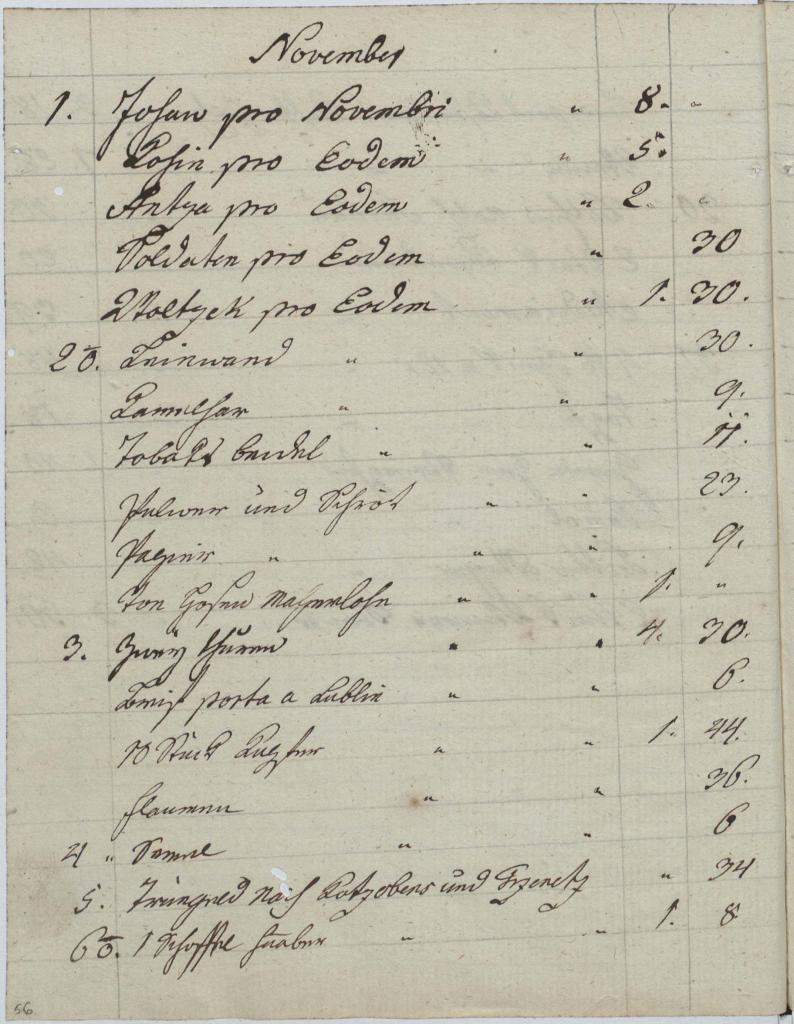 November
1. Johan pro Novembri " 8. "
Kosin pro Eodem " 5.
Antza pro Eodem " 2. "
Soldaten pro Eodem " 30
Woltzek pro Eodem " 1. 30.
2ō. Leinwand " " 30.
Kamelhar " " 9.
Tobaks beidel " " 11.
Pulwer und Schrot " " 23.
Papier " " 9.
Von Hosen Macherlohn " " 1. "
3. Zweÿ thüren " " 4. 30.
Brif porta a Lublin " " 6.
10 Stück " " 1. 44.
flaumen " " 36.
4 " Semel " " 6
5. Tringeld nach Kotzobens und " 34
6ō. 1 Schoffel haaber " " 1. 8
56